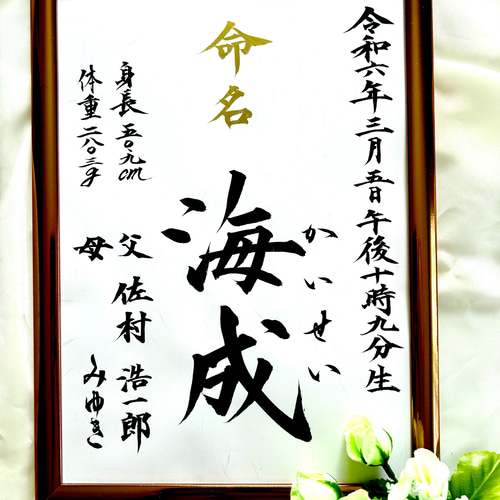 令和六年三月五日午後十時九分生
命名
海成
かいせい
身長五〇.九cm
体重二八〇三g
父 佐村 浩一郎
母 みゆき